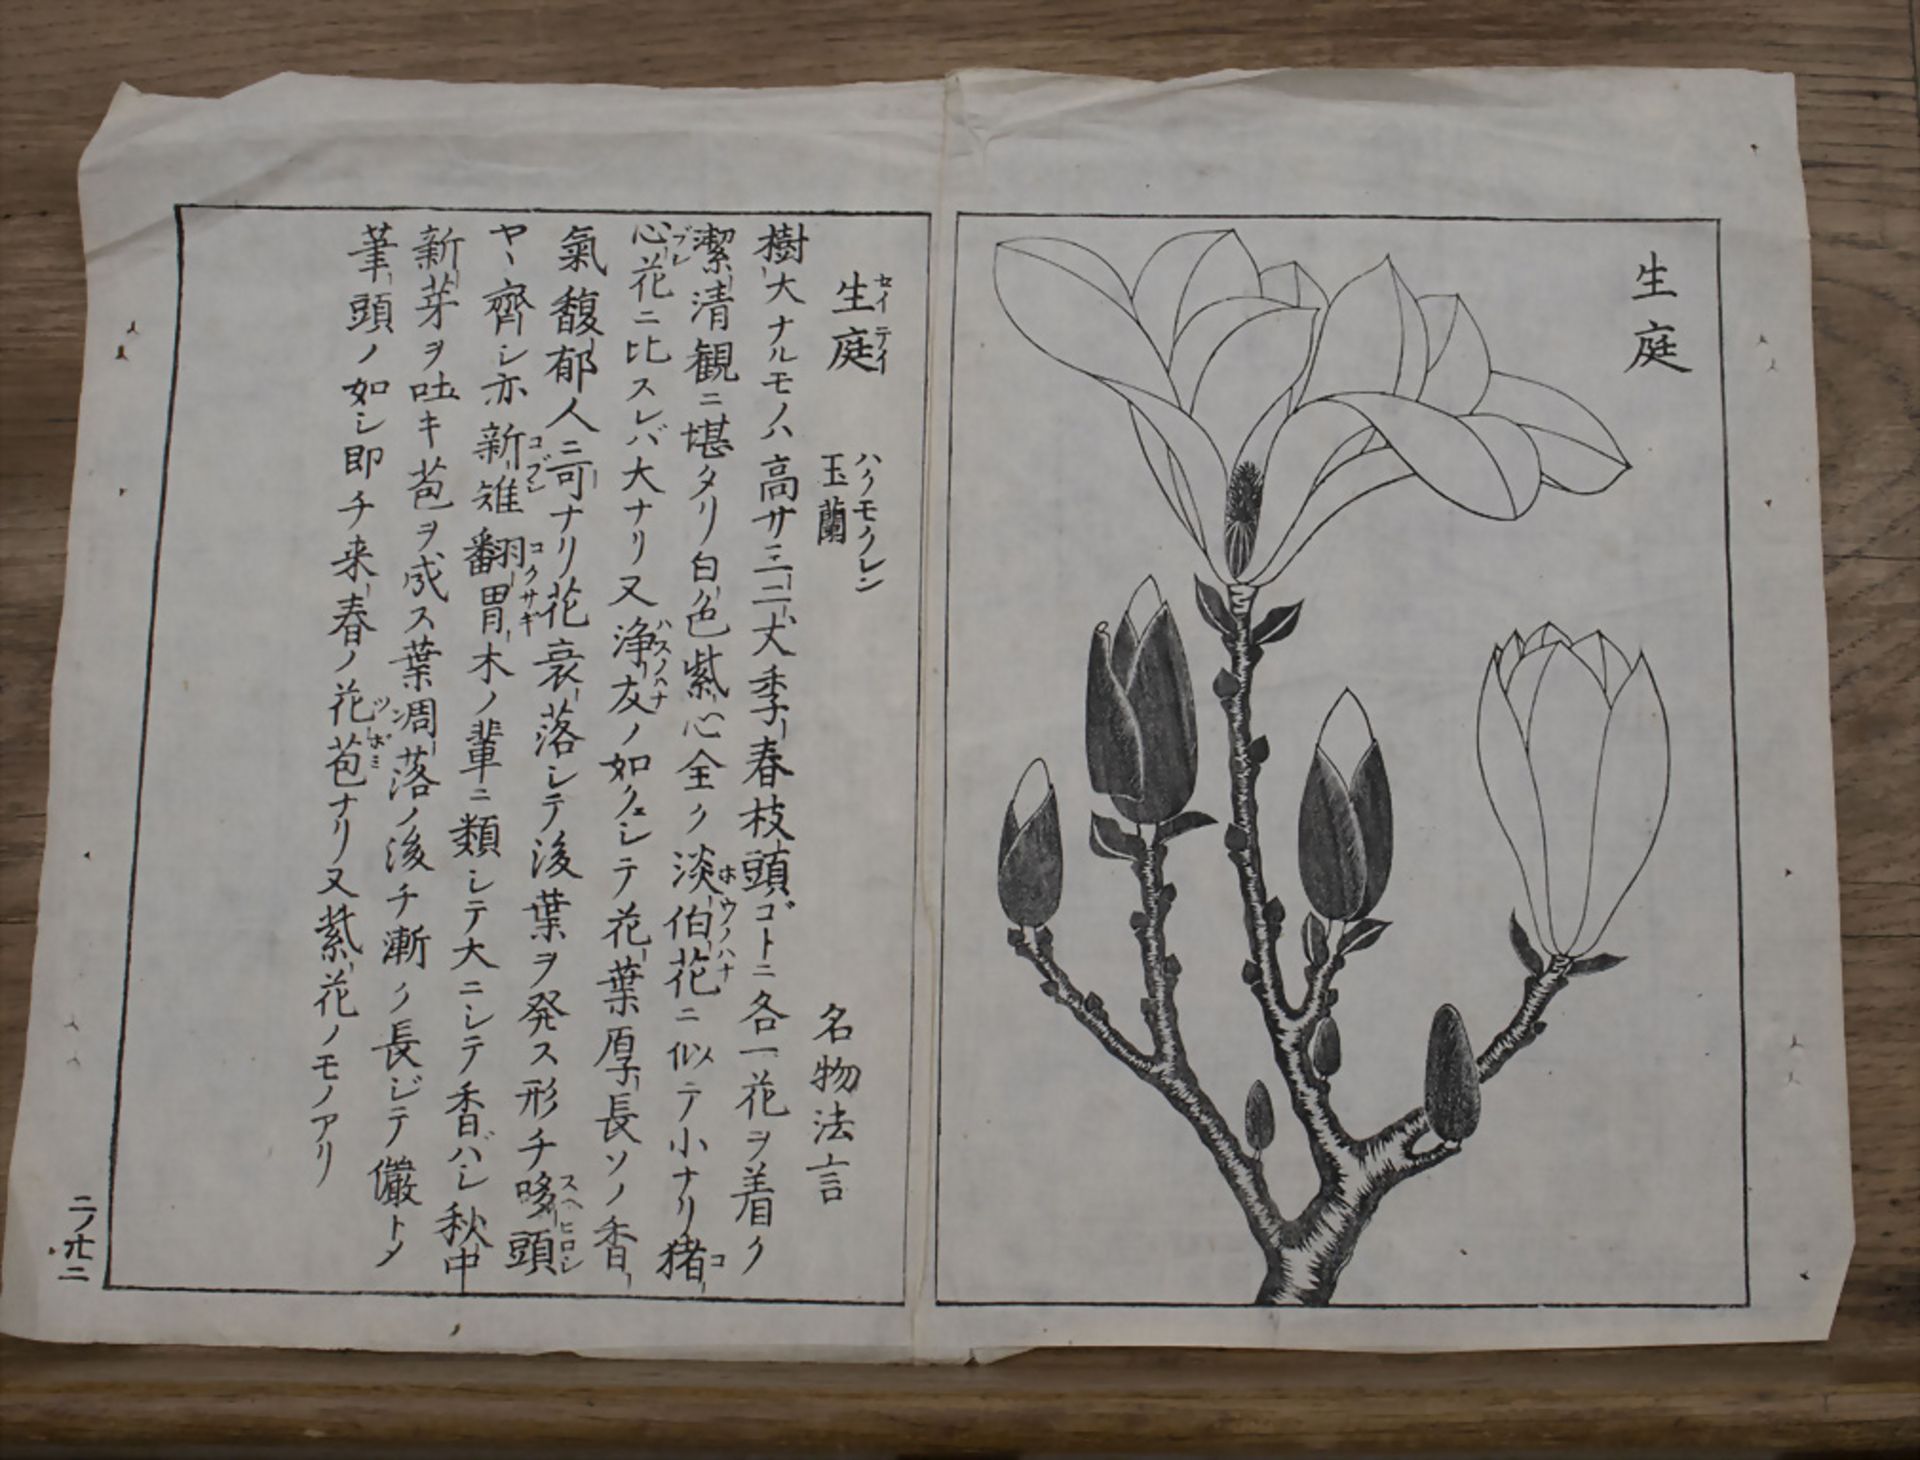 生庭
生庭 セイテイ 玉蘭 ハクモクレン 名物法言
樹大ナルモノハ高サ三二丈季春枝頭ゴトニ各一花ヲ着ク
潔清観ニ堪タリ白色紫心全ク淡伯花ホウノハナニ似メテ小ナリ猪コ
心ブシ花ニ比スレバ大ナリ又浄友ハスノハナノ如クニシテ花葉厚長ソノ香
氣馥郁人ニ可ナリ花衰落シテ後葉ヲ発ス形チ哆頭スヘヒロシ
ヤヽ齊シ亦新雉コブシ翻胃コクサギ木ノ輩ニ類シテ大ニシテ香バシ秋中
新芽ヲ吐キ苞ヲ成ス葉凋落ノ後チ漸ク長ジテ儼トメ
筆頭ノ如シ即チ来春ノ花苞ツボミナリ又紫花ノモノアリ
二ノ廿二